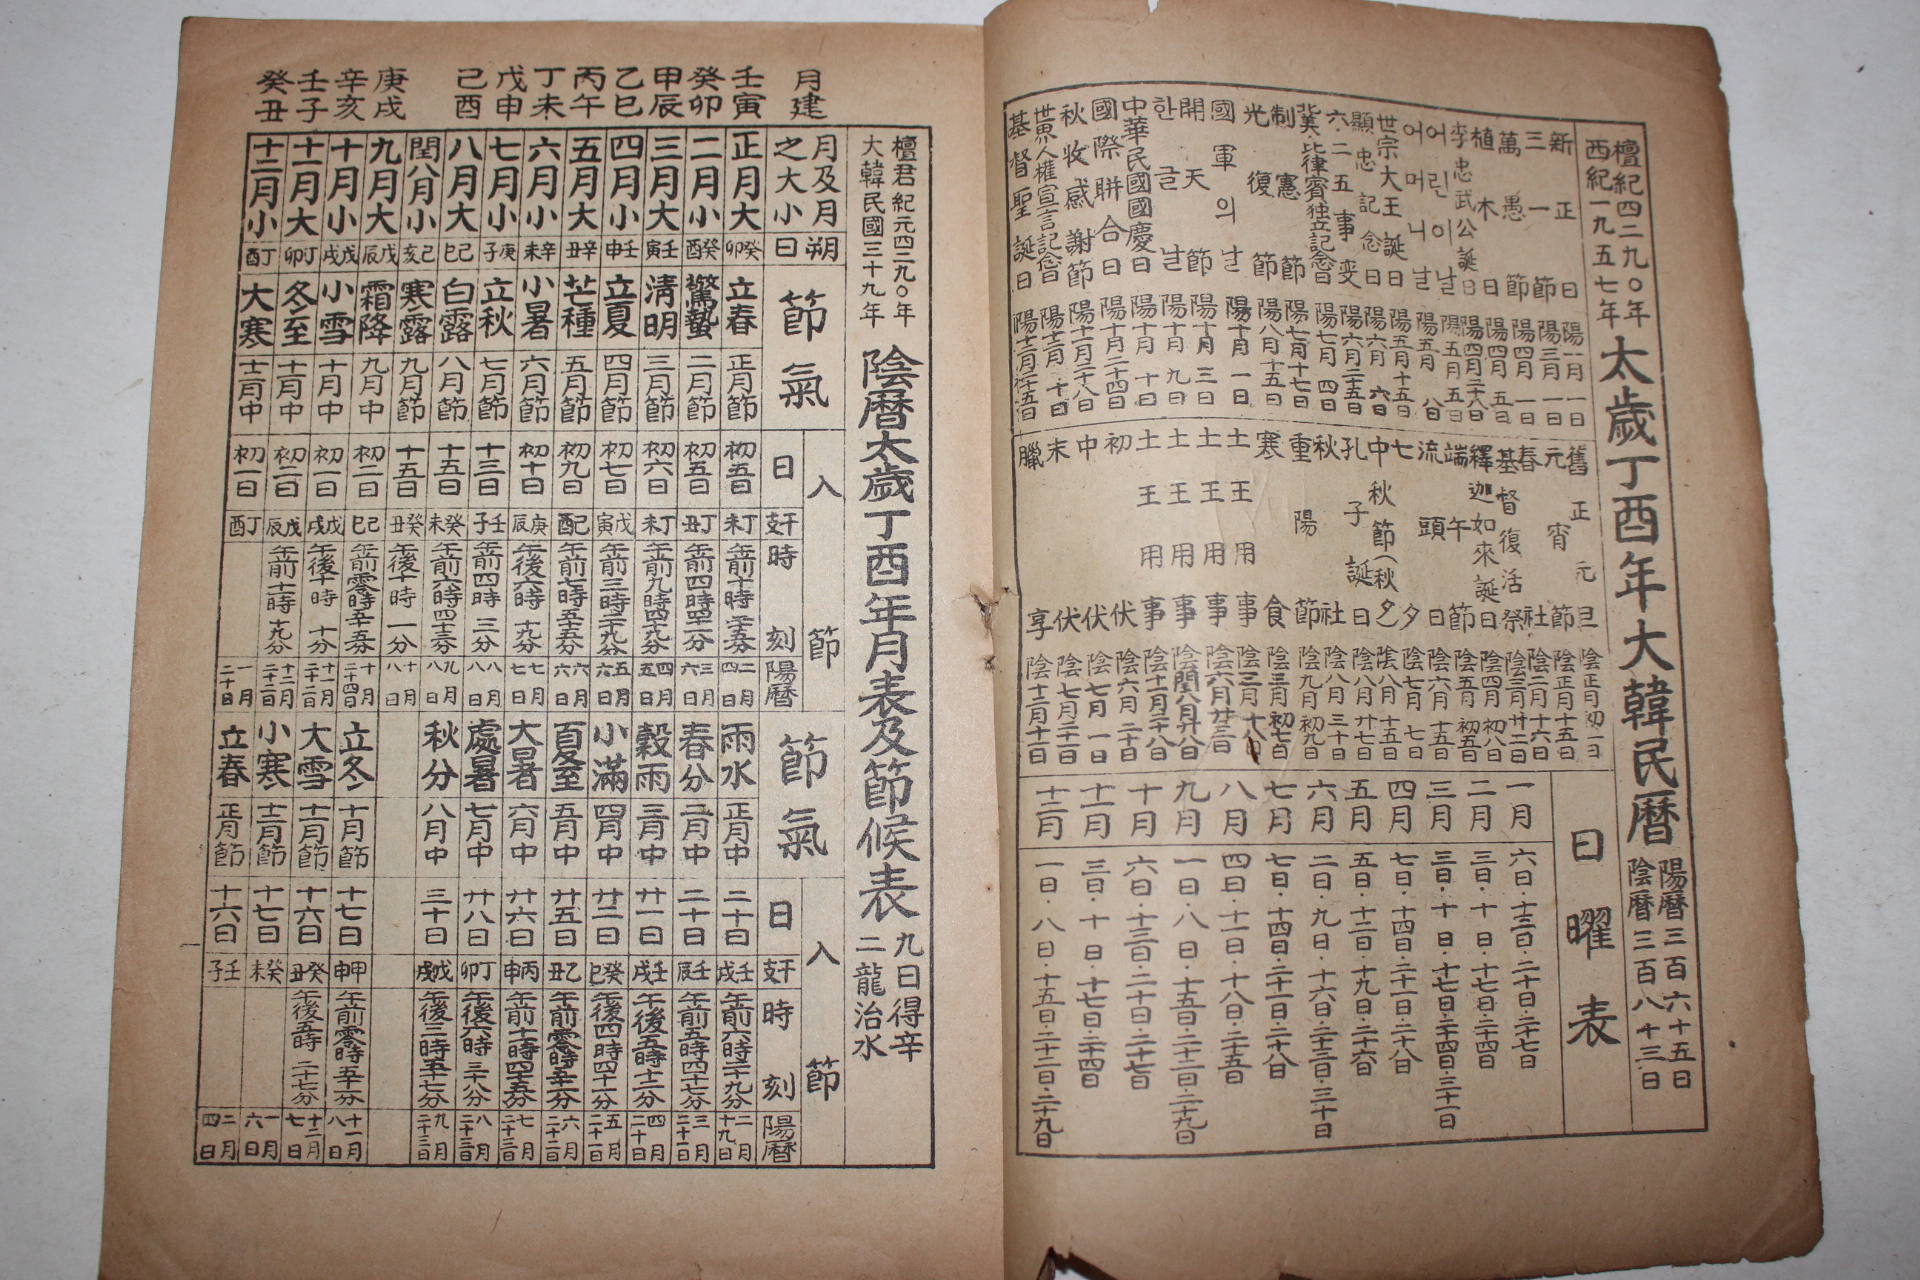 檀紀四二九〇年
西紀一九五七年
太歲丁酉年大韓民曆
陽曆三百六十五日
陰曆三百八十三日
新正日 陽一月一日
三一節 陽三月一日
萬愚節 陽四月一日
植木日 陽四月五日
李忠武公誕日 陽四月二十八日
어린이날 陽五月五日
어머니날 陽五月八日
世宗大王誕日 陽五月十五日
顯忠記念日 陽六月六日
六·二五事変 陽六月二十五日
比律賓独立記念日 陽七月四日
制憲節 陽七月十七日
光復節 陽八月十五日
國軍의날 陽十月一日
開天節 陽十月三日
한글날 陽十月九日
中華民國國慶日 陽十月十日
國際聯合日 陽十月二十四日
秋收感謝節 陽十一月二十八日
世界人權宣言記念日 陽十二月十日
基督聖誕日 陽十二月二十五日
舊正元旦 陰正月初一日
元宵節 陰正月十五日
春社 陰二月十六日
基督復活祭 陰三月廿二日
釋迦如來誕日 陰四月初八日
端午節 陰五月初五日
流頭日 陰六月十五日
七夕 陰七月七日
中秋節(秋夕) 陰八月十五日
孔子誕日 陰八月廿七日
秋社 陰八月三十日
重陽節 陰九月初九日
寒食 陰三月初七日
土王用事 陰三月十八日
土王用事 陰六月廿三日
土王用事 陰閏八月廿八日
土王用事 陰十一月二十八日
初伏 陰六月二十日
中伏 陰七月一日
末伏 陰七月二十一日
臘享 陰十二月十一日
日曜表
一月 六日·十三日·二十日·二十七日
二月 三日·十日·十七日·二十四日
三月 三日·十日·十七日·二十四日·三十一日
四月 七日·十四日·二十一日·二十八日
五月 五日·十二日·十九日·二十六日
六月 二日·九日·十六日·二十三日·三十日
七月 七日·十四日·二十一日·二十八日
八月 四日·十一日·十八日·二十五日
九月 一日·八日·十五日·二十二日·二十九日
十月 六日·十三日·二十日·二十七日
十一月 三日·十日·十七日·二十四日
十二月 一日·八日·十五日·二十二日·二十九日
檀君紀元四二九〇年
大韓民國三十九年
陰曆太歲丁酉年月表及節候表
九日得辛
二龍治水
月建 月及月之大小 朔日 節氣 入節 日 奸 時刻 陽曆 節氣 入節 日 奸 時刻 陽曆
壬寅 正月大 癸卯 立春 正月節 初五日 丁未 午前十時二十五分 二月四日 雨水 正月中 二十日 壬戌 午前六時二十九分 二月十九日
癸卯 二月小 癸酉 驚蟄 二月節 初五日 丁丑 午前四時四十一分 三月六日 春分 二月中 二十日 壬辰 午前五時四十七分 三月二十一日
甲辰 三月大 壬寅 清明 三月節 初六日 丁未 午前九時四十九分 四月五日 穀雨 三月中 廿一日 壬戌 午後五時十二分 四月二十日
乙巳 四月小 壬申 立夏 四月節 初七日 戊寅 午前三時二十九分 五月六日 小滿 四月中 廿二日 癸巳 午後四時四十一分 五月二十一日
丙午 五月大 辛丑 芒種 五月節 初九日 己酉 午前七時五十五分 六月六日 夏至 五月中 廿五日 乙丑 午前零時五十一分 六月二十二日
丁未 六月小 辛未 小暑 六月節 初十日 庚辰 午後六時十九分 七月七日 大暑 六月中 廿六日 丙申 午前十一時四十五分 七月二十三日
戊申 七月小 庚子 立秋 七月節 十三日 壬子 午前四時三分 八月八日 處暑 七月中 廿八日 丁卯 午後六時三十八分 八月二十三日
己酉 八月大 己巳 白露 八月節 十五日 癸未 午前六時四十三分 九月八日 秋分 八月中 三十日 戊戌 午後三時五十七分 九月二十三日
閏八月小 己亥 寒露 九月節 十五日 癸丑 午後十時一分 十月八日
庚戌 九月大 戊辰 霜降 九月中 初二日 己巳 午前零時五十五分 十月二十四日 立冬 十月節 十七日 甲申 午前零時五十分 十一月八日
辛亥 十月小 戊戌 小雪 十月中 初一日 戊戌 午後十時十分 十一月二十二日 大雪 十一月節 十六日 癸丑 午後五時二十七分 十二月七日
壬子 十一月大 丁卯 冬至 十一月中 初二日 戊辰 午前十一時十九分 十二月二十二日 小寒 十二月節 十七日 癸未 一月六日
癸丑 十二月小 丁酉 大寒 十二月中 初一日 丁酉 一月二十日 立春 正月節 十六日 壬子 二月四日